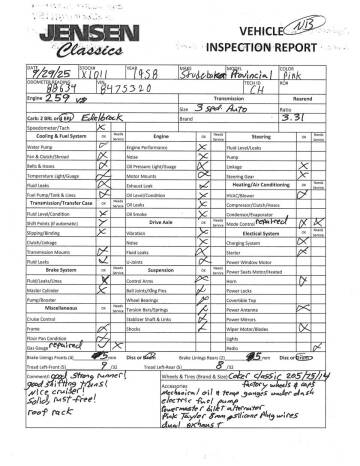 JENSEN
Classics
VEHICLE NB
INSPECTION REPORT
DATE 9/29/25 STOCK# X1011 YEAR 1958 MAKE Studebaker MODEL Provincial COLOR Pink
ODOMETER READING 88634 VIN 8475320 TECH CH RO#
Engine 259 V8 Transmission Rearend
Size 3 spd. Auto Ratio
Carb: 2 BRL or 4 BRL Edelbrock Brand 3.31
Speedometer/Tach X
Cooling & Fuel System OK Needs Service Engine OK Needs Service Steering OK Needs Service
Water Pump Engine Performance Fluid Level/Leaks
Fan & Clutch/Shroud Noise Pump
Belts & Hoses Oil Pressure Light/Guage Linkage
Temperature Light/Guage Motor Mounts Steering Gear
Fluid Leaks Exhaust Leak Heating/Air Conditioning OK Needs Service
Fuel Pump/Tank & Lines Oil Level/Condition HVAC/Blower
Transmission/Transfer Case OK Needs Service Oil Leaks Compressor/Clutch/Hoses
Fluid Level/Condition Oil Smoke Condenser/Evaporator
Shift Points (if automatic) Drive Axle OK Needs Service Mode Control repaired
Slipping/Binding Vibration Electical System OK Needs Service
Clutch/Linkage Noise Charging System
Transmission Mounts Fluid Leaks Starter
Fluid Leaks U-Joints Power Window Motor
Brake System OK Needs Service Suspension OK Needs Service Power Seats Motor/Heated
Fluid/Leaks/Lines Control Arms Horn
Master Cylinder Ball Joints/King Pins Power Locks
Pump/Booster Wheel Bearings Covertible Top
Miscellaneous OK Needs Service Torsion Bars/Springs Power Antenna
Cruise Control Stabilizer Shaft & Links Power Mirrors
Frame Shocks Wiper Motor/Blades
Floor Pan Condition Lights
Gas Gauge repaired Radio
Brake Lining Fronts (%) 5 mm Disc or Drum Brake Lining Rears (%) 5 mm Disc or Drum
Tread Left-Front (S) 9 /32 Tread Left-Rear (S) 8 /32
Comments: good strong runner! Wheels & Tires (Brand & Size) Coker classic 205/75/14
good shifting trans! Accessories factory wheels & caps
nice cruiser! mechanical oil & temp gauges under dash
Solid, rust free! electric fuel pump
roof rack Powermaster billet alternator
Pink Taylor 8mm silicone plug wires
dual exhaust